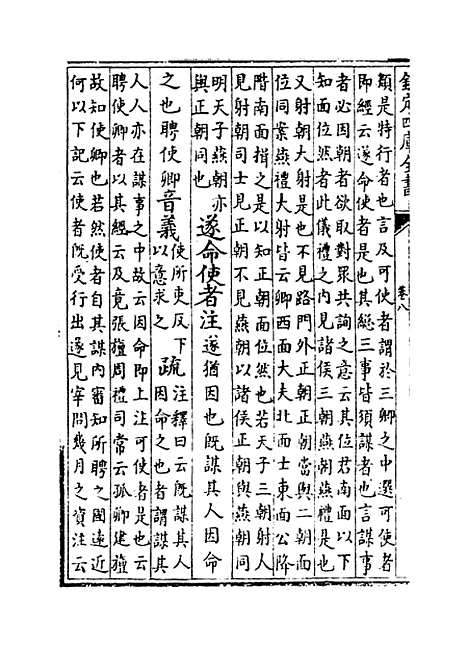 欽定四庫全書
卷八
類是特行者也言及可使者謂於三卿之中選可使者
即經云遂命使者是也其總三事皆須謀者也言謀事
者必因朝者欲取對眾共詢之意云其位君南面以下
知面位然者此儀禮之內見諸侯三朝燕朝燕禮是也
又射朝大射是也不見路門外正朝正朝當與二朝面
位同案燕禮大射皆云卿西面大夫北面士東面公降
階南面揖之是以知正朝面位然也若天子三朝射人
見射朝司士見正朝不見燕朝以諸侯正朝與燕朝同
明天子燕朝亦
與正朝同也
遂命使者注遂猶因也既謀其人因命
之也聘使卿音義使所吏反下
以意求之
疏注釋曰云既謀其人
因命之也者謂謀其
人人亦在謀事之中故云因命即上注可使者是也云
聘使卿者以其經云及竟張旜周禮司常云孤卿建旜
故知使卿也若然使者自其謀內審知所聘之國遠近
何以下記云使者既受行出遂見宰問幾月之資注云